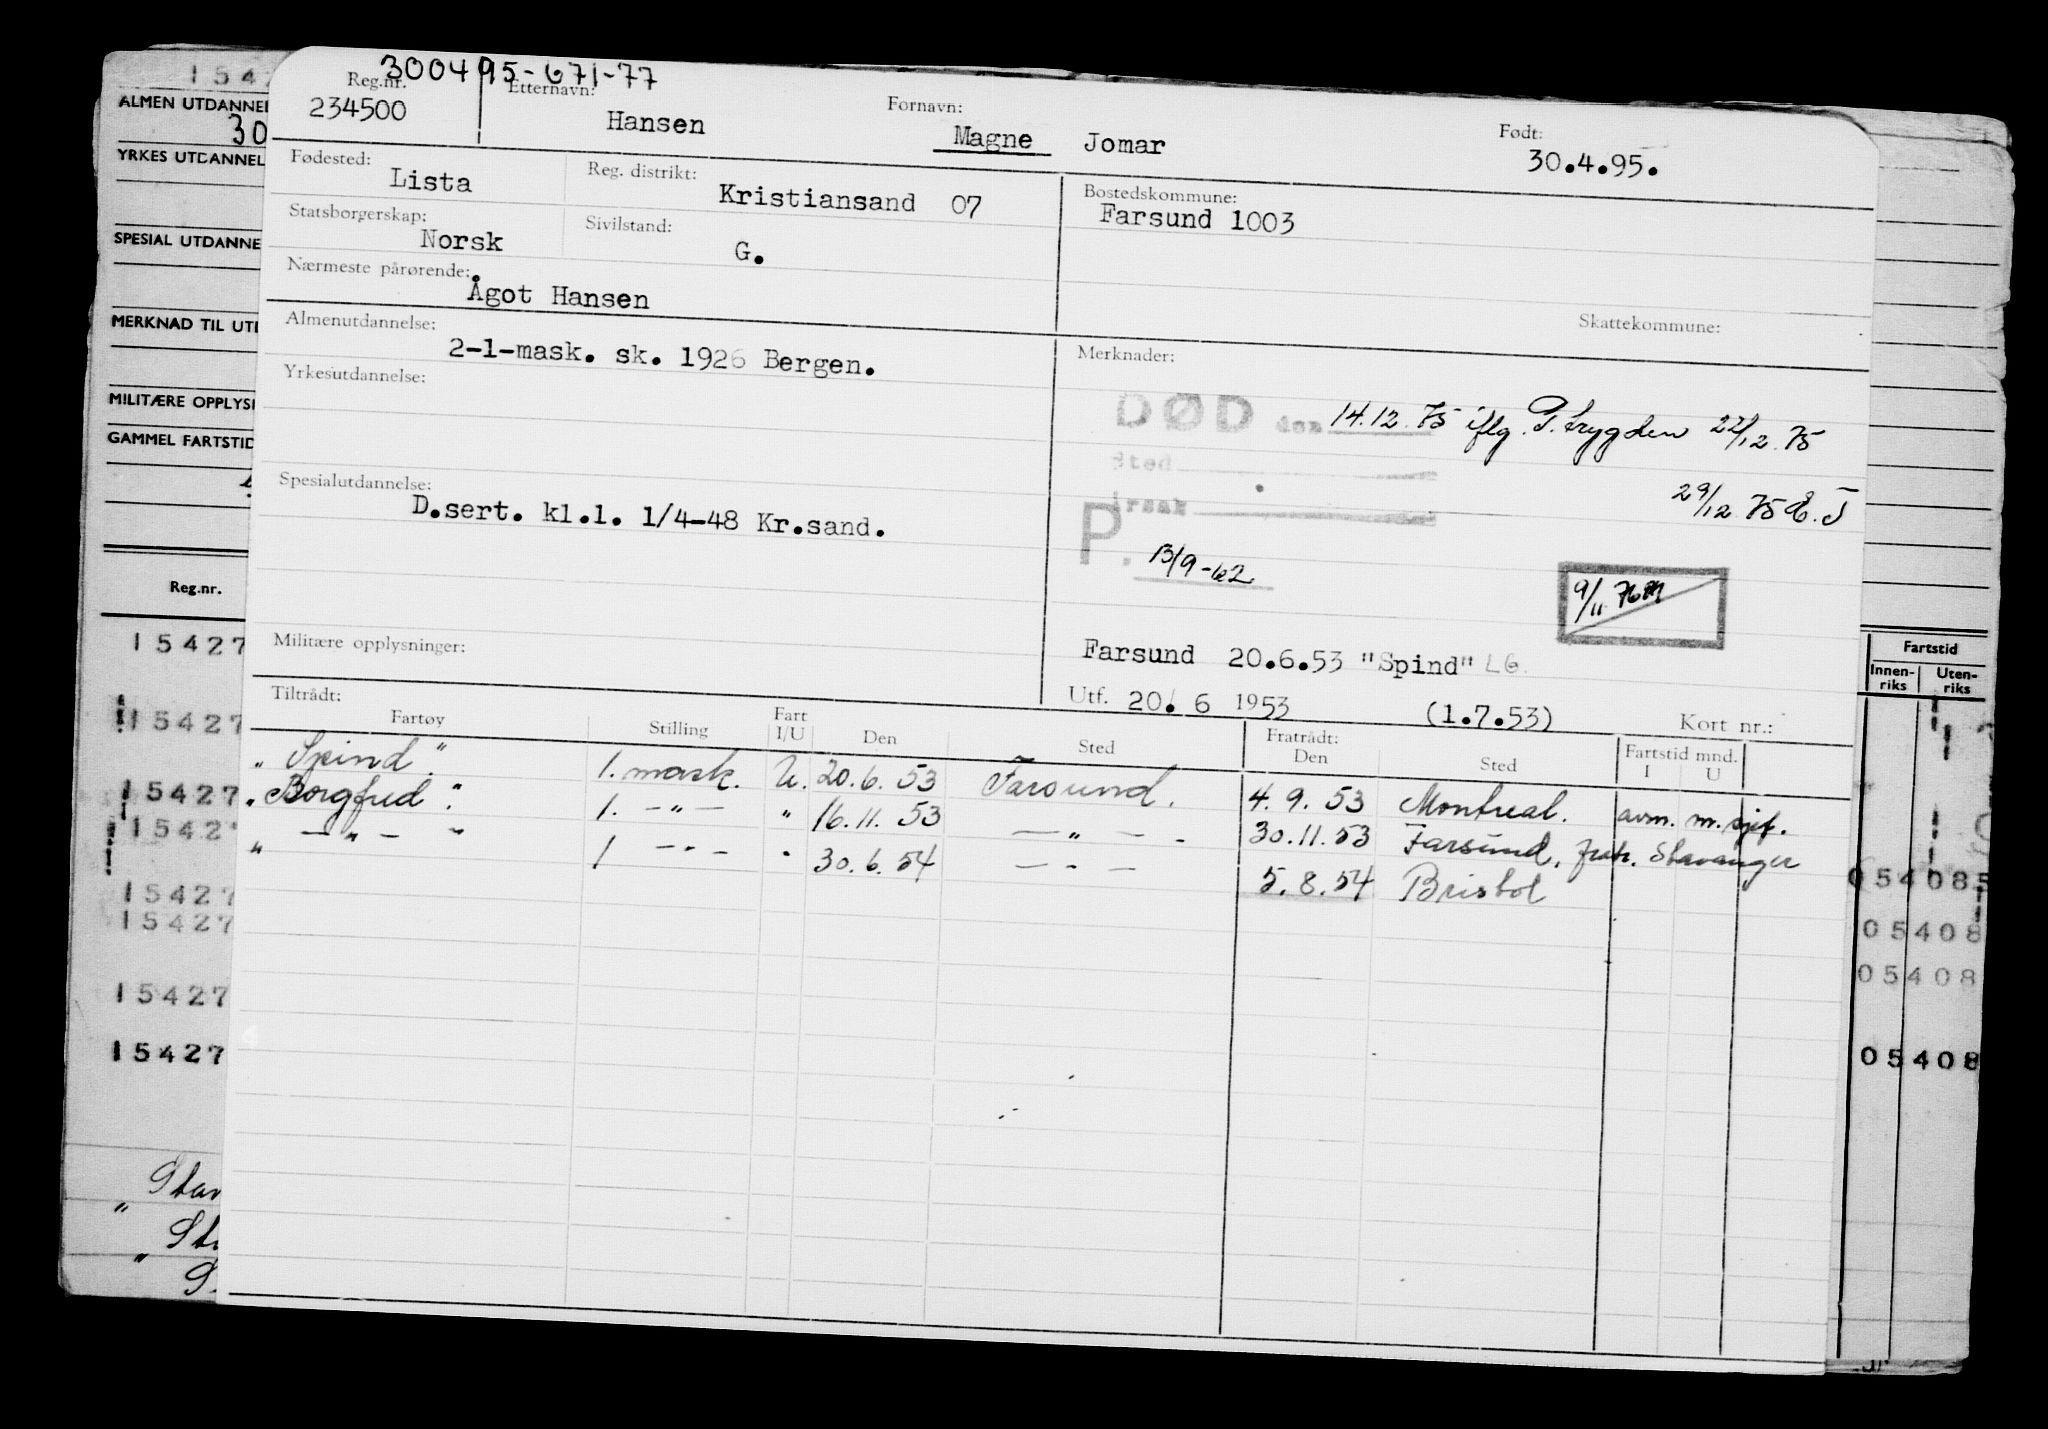 300495-671-77
Reg.nr. Etternavn: Fornavn: Født:
234500 Hansen Magne Jomar 30.4.95.
Fødested: Reg. distrikt: Bostedskommune:
Lista Kristiansand 07 Farsund 1003
Statsborgerskap: Sivilstand:
Norsk G.
Nærmeste pårørende:
Ågot Hansen
Skattekommune:
Almenutdannelse: Merknader:
2-1-mask. sk. 1926 Bergen.
Yrkesutdannelse:
DØD den 14.12.75 iflg. P. trygden 22/12.75
Sted
Årsak
29/12.75 E.J
Spesialutdannelse:
D.sert. kl.1. 1/4-48 Kr.sand.
P. 13/9-62
9/11.76
Militære opplysninger:
Farsund 20.6.53 "Spind" LG.
Utf. 20. 6 1953 (1.7.53) Kort nr.:
Tiltrådt: Fratrådt:
Fartøy Stilling Fart I/U Den Sted Den Sted Fartstid mnd. I U
"Spind" 1. mask. U. 20.6.53 Farsund. 4.9.53 Montreal. avm. m. sjef.
"Borgfred". 1. -"- " 16.11.53 -"- 30.11.53 Farsund, fratr. Stavanger
" -"- " 1 -"- " 30.6.54 -"- 5.8.54 Bristol
1542
ALMEN UTDANNEL
30
YRKES UTDANNEL
SPESIAL UTDANNE
MERKNAD TIL UT
MILITÆRE OPPLYSI
GAMMEL FARTSTID
Reg.nr.
Fartstid
Innen-riks Uten-riks
15427
15427
15427
15427
15427
15427
15427
15427
054085
05408
05408
05408
Stav
" St
"